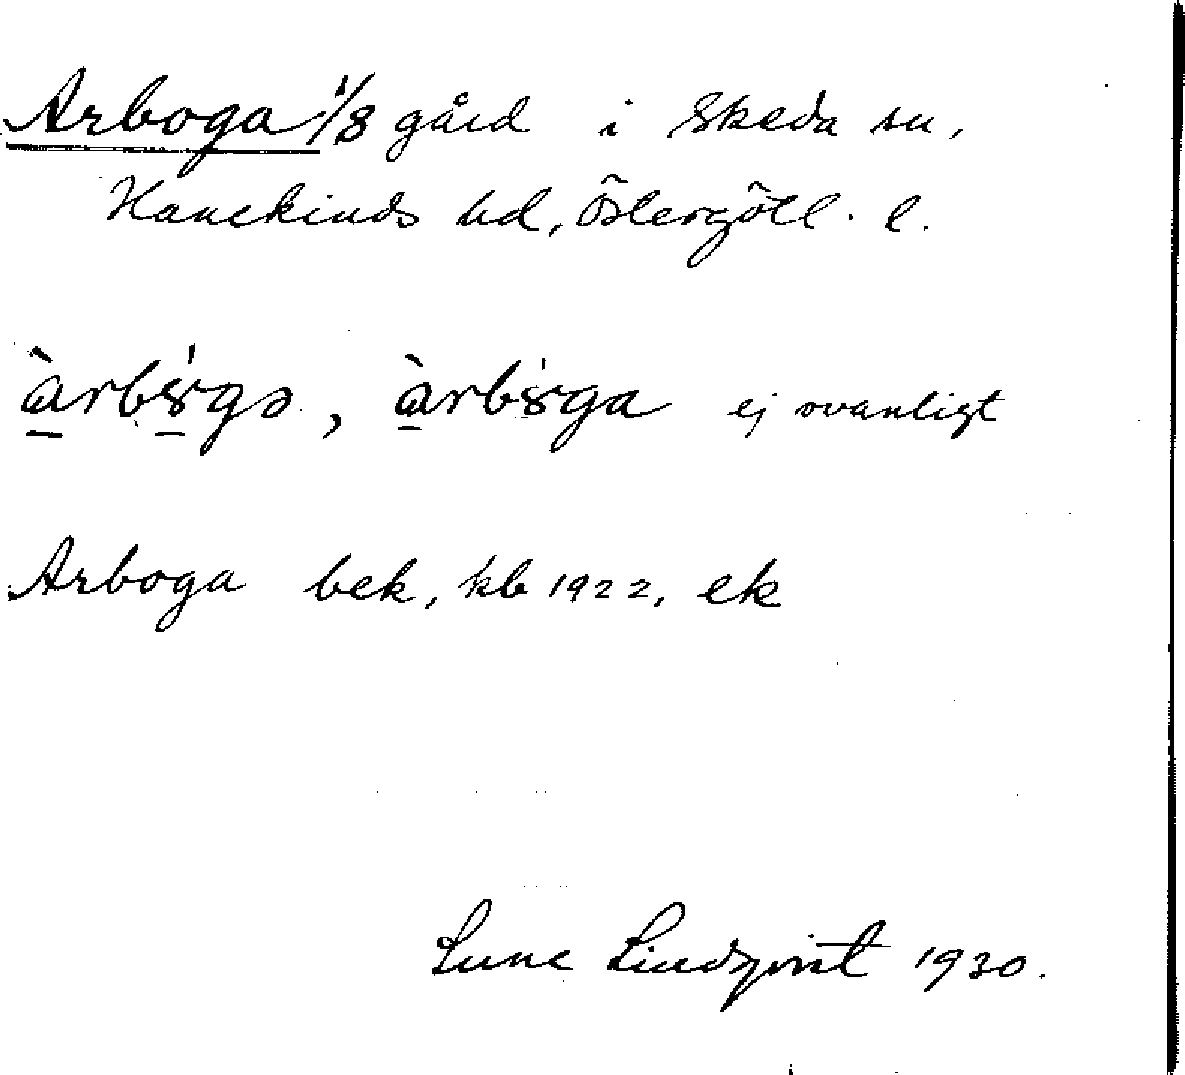 Arboga 1/8 gård i Skeda sn,
Hanekinds hd, Östergötl. l.
ej ovanligt
Arboga bek, kb 1922, ek
Sune Lindqvist 1930.